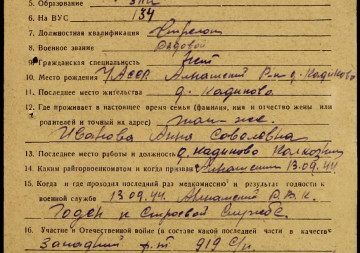 5. Образование 3 кл
6. На ВУС 134
7. Должностная квалификация Стрелок
8. Военное звание Рядовой
9. Гражданская специальность нет
10. Место рождения ЧАССР Аликовский р-н д. Кадиково
11. Последнее место жительства д. Кадиково
12. Где проживает в настоящее время семья (фамилия, имя и отчество жены или
родителей и точный их адрес) там же
Иванова Анна
13. Последнее место работы и должность д. Кадиково Колхозник
14. Каким райгорвоенкоматом и когда призван 13.09.44
15. Когда и где проходил последний раз медкомиссию и результат годности к
военной службе 13.09.44 Р.В.К.
Годен к Строевой Службе.
16. Участие в Отечественной войне (в составе какой последней части и в качестве
Западный р.т. 919 С/п.